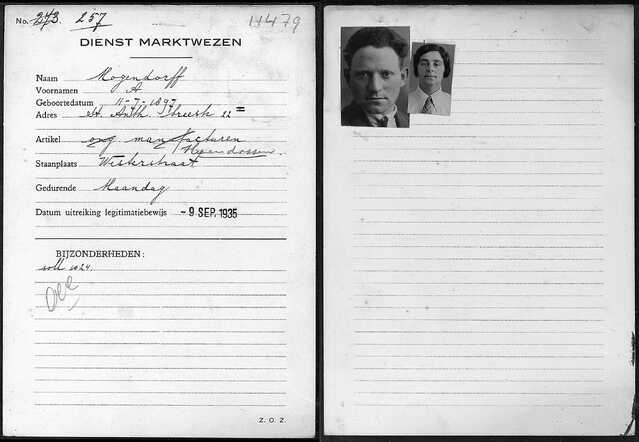 No. 273. 257 11479
DIENST MARKTWEZEN
Naam Mogendorff
Voornamen A
Geboortedatum 11-7-1897
Adres St. Anth. Breestr 22 =
Artikel ong manufacturen
Heerendassen.
Staanplaats Westerstraat
Gedurende Maandag
Datum uitreiking legitimatiebewijs -9 SEP. 1935
BIJZONDERHEDEN:
Z. O. Z.